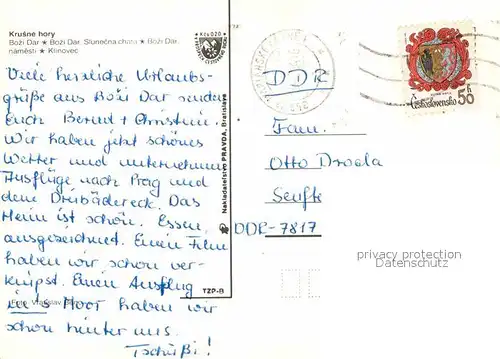 Krušné hory
Boží Dar ★ Boží Dar, Slunečná chata ★ Boží Dar,
náměstí ★ Klínovec
Kčs 0,20
Viele herzliche Urlaubs-
grüße aus Boži Dar senden
Euch Bernd + Christein.
Wir haben jetzt schönes
Wetter und unternehmen
Ausflüge nach Prag und
dem Dreibädereck. Das
Heim ist schön. Essen
ausgezeichnet. Einen Film
haben wir schon ver-
knipst. Einen Ausflug
in's Moor haben wir
schon hinter uns.
Tschüßi!
Foto Vratislav
Nakladatelstvo PRAVDA, Bratislava
TZP-B
DDR
Fam.
Otto Drola
Senfte
DDR-7817
Československo 50 h
privacy protection
Datenschutz